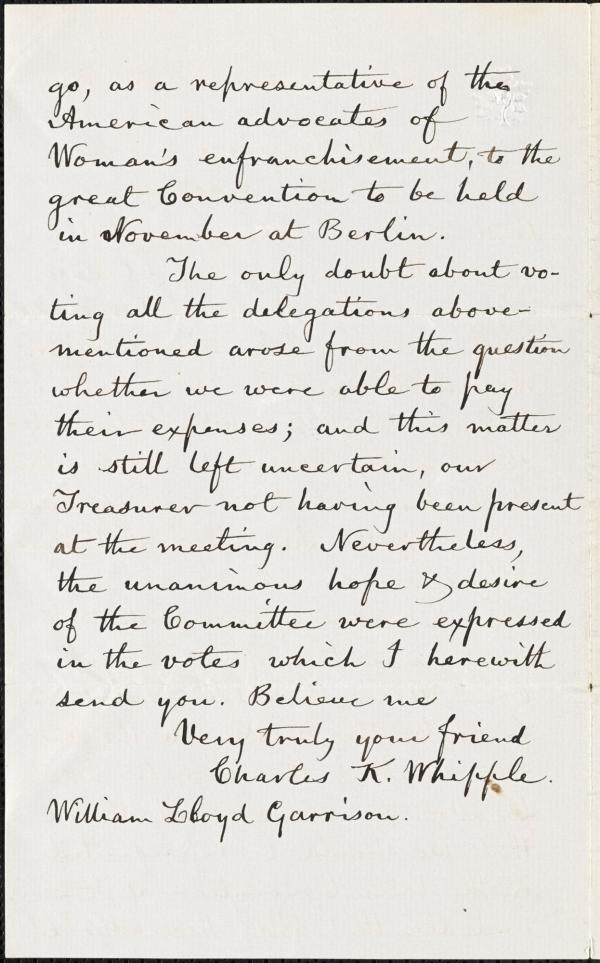 go, as a representative of the
American advocates of
Woman's enfranchisement, to the
great Convention to be held
in November at Berlin.
The only doubt about vo-
ting all the delegations above-
mentioned arose from the question
whether we were able to pay
their expenses; and this matter
is still left uncertain, our
Treasurer not having been present
at the meeting. Nevertheless,
the unanimous hope & desire
of the Committee were expressed
in the votes which I herewith
send you. Believe me
Very truly your friend
Charles K. Whipple.
William Lloyd Garrison.